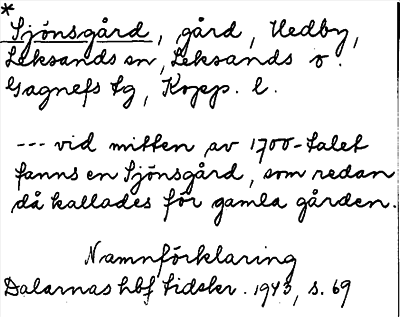 *
Sjönsgård, gård, Hedby,
Leksands sn, Leksands o.
Gagnefs tg, Kopp. l.
--- vid mitten av 1700-talet
fanns en Sjönsgård, som redan
då kallades för gamla gården.
Namnförklaring
Dalarnas hbf tidskr. 1943, s. 69